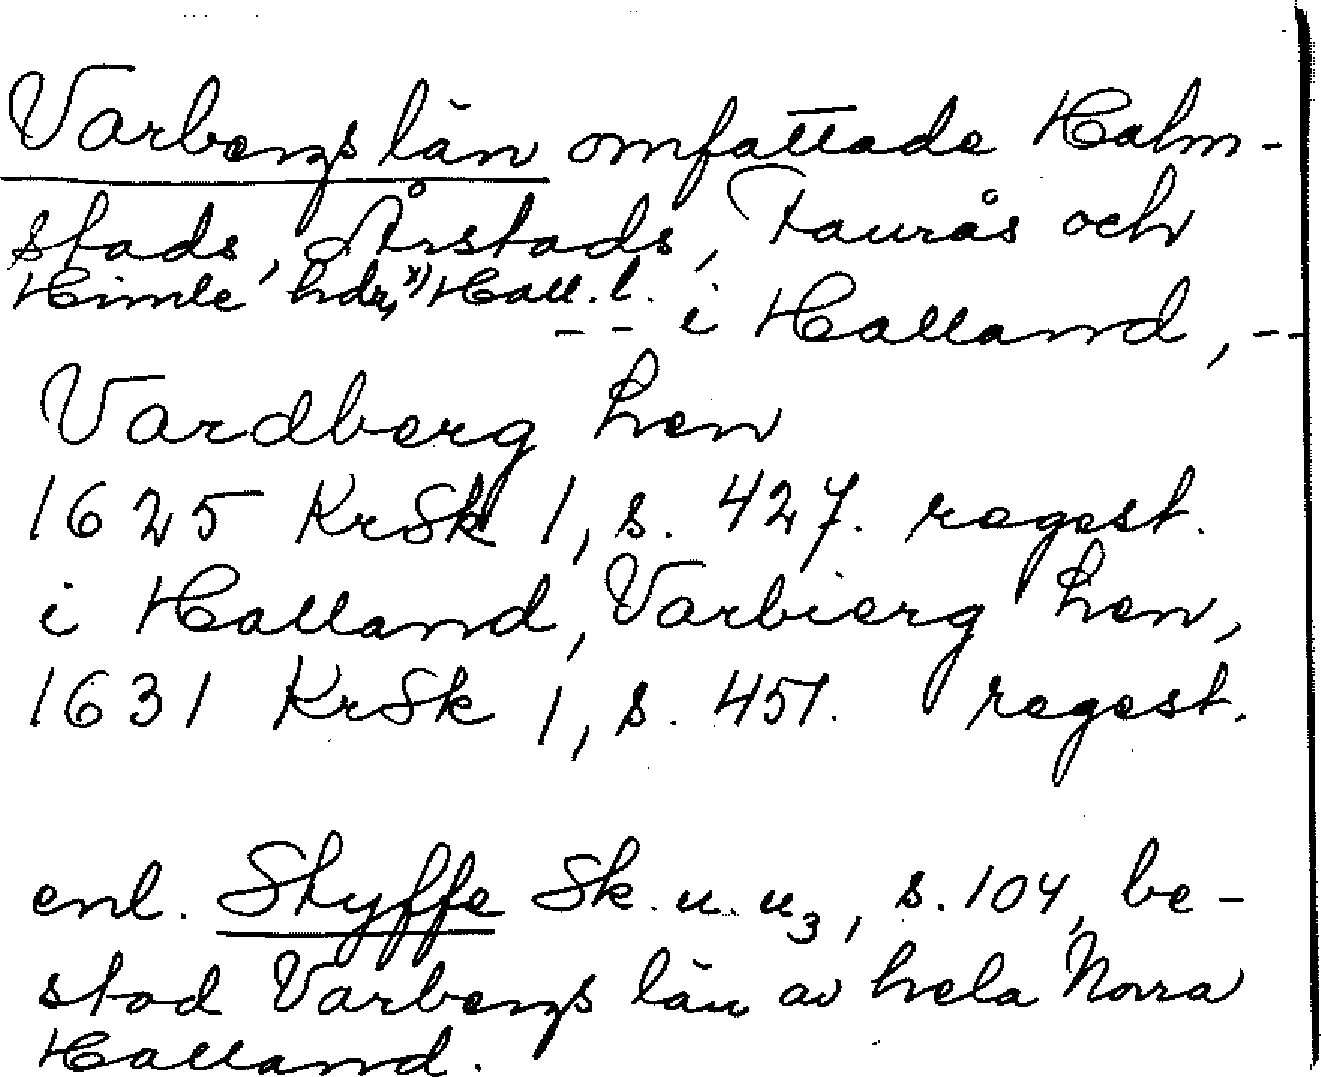 Varbergs län omfattade Halm-
stads, Årstads, Faurås och
Himle hdr,ˣ⁾ Hall. l.
-- i Halland, --
Vardberg Len
1625 KrSk 1, s. 427. regest.
i Halland, Varbierg Len,
1631 KrSk 1, s. 451. regest.
enl. Styffe Sk. u. u₃, s. 104, be-
stod Varbergs län av hela Norra
Halland.